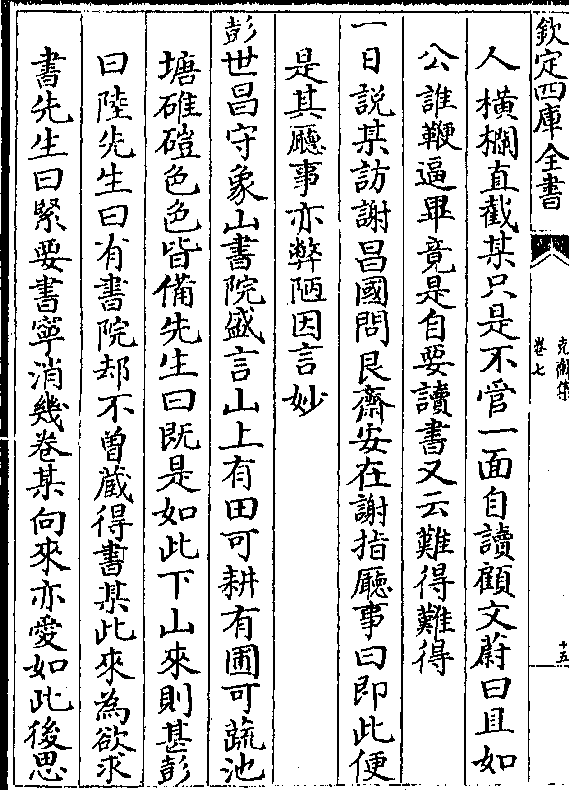 欽定四庫全書
克齋集
卷七
十五
人橫攔直截某只是不管一面自讀顧文蔚曰且如
公誰鞭逼畢竟是自要讀書又云難得難得
一日說某訪謝昌國問艮齋安在謝指廳事曰即此便
是其廳事亦弊陋因言妙
彭世昌守象山書院盛言山上有田可耕有圃可蔬池
塘碓磑色色皆備先生曰既是如此下山來則甚彭
曰陸先生曰有書院却不曾藏得書某此來為欲求
書先生曰緊要書寧消幾卷某向來亦愛如此後思